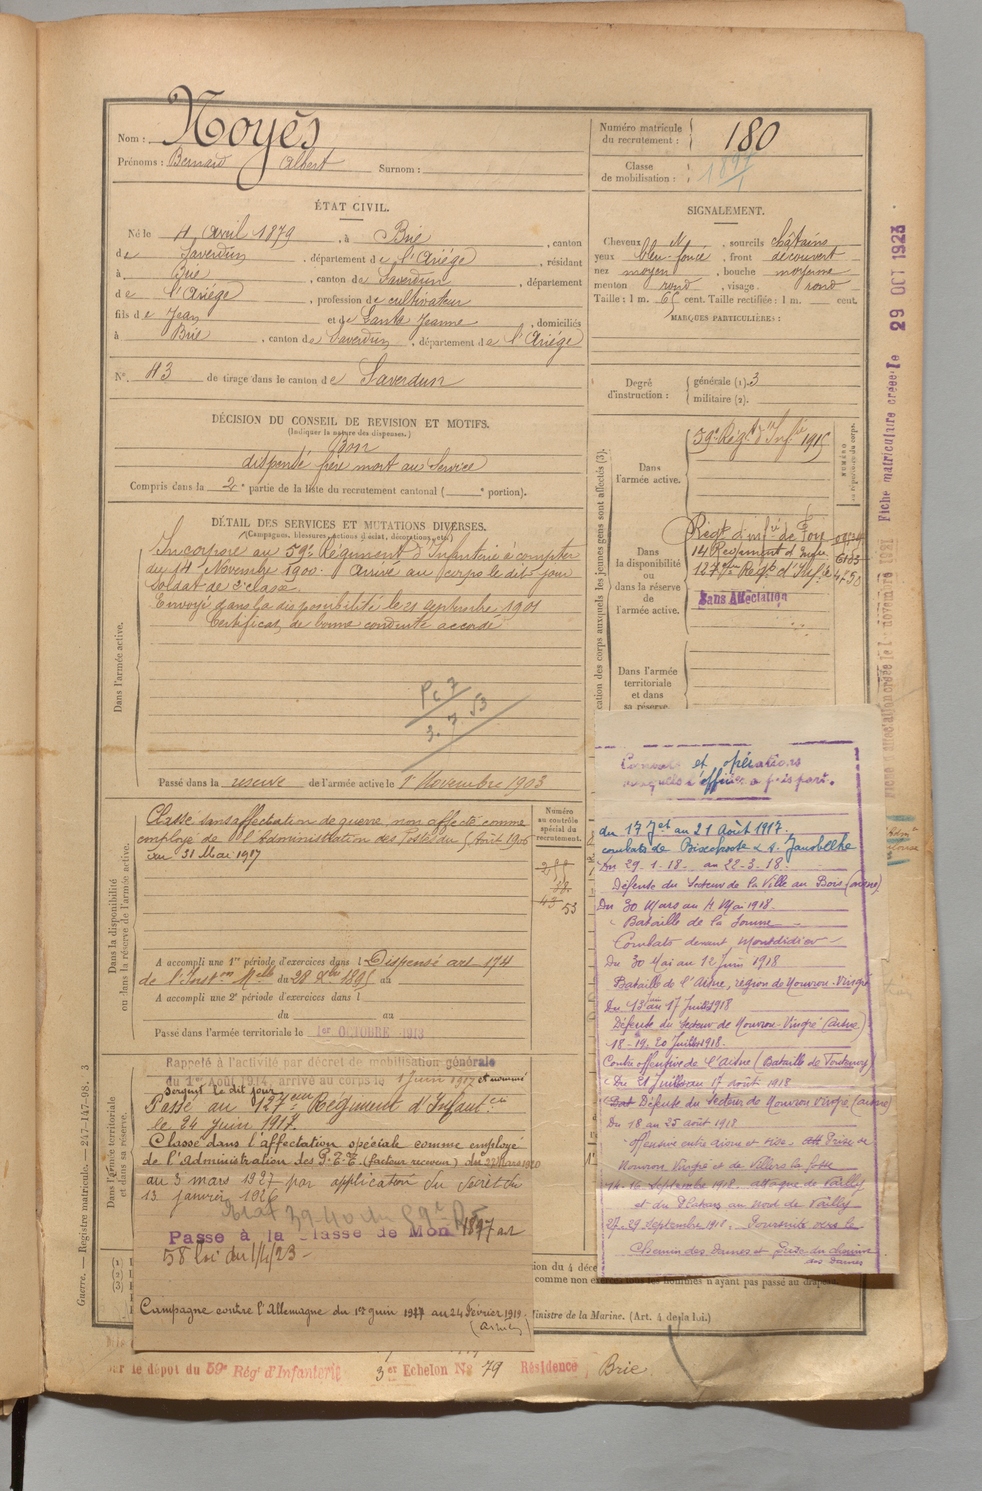 Nom : Noyès
Prénoms : Bernard Albert Surnom :
Numéro matricule
du recrutement : 180
Classe
de mobilisation : 1897
ÉTAT CIVIL.
Né le 4 Avril 1879, à Brie, canton
de Saverdun, département de l'Ariège, résidant
à Brie, canton de Saverdun, département
de l'Ariège, profession de cultivateur
fils de Jean et de Santa Jeanne, domiciliés
à Brie, canton de Saverdun, département de l'Ariège
N° 43 de tirage dans le canton de Saverdun
SIGNALEMENT.
Cheveux N, sourcils châtains
yeux bleu-foncé, front découvert
nez moyen, bouche moyenne
menton rond, visage rond
Taille : 1 m. 65 cent. Taille rectifiée : 1 m. cent.
MARQUES PARTICULIÈRES :
Degré
d'instruction : générale (1). 3
militaire (2).
DÉCISION DU CONSEIL DE REVISION ET MOTIFS.
(Indiquer la nature des dispenses.)
Bon
dispensé frère mort au Service
Compris dans la 2e partie de la liste du recrutement cantonal ( e portion).
DÉTAIL DES SERVICES ET MUTATIONS DIVERSES.
(Campagnes, blessures, actions d'éclat, décorations, etc.)
Dans l'armée active.
Incorporé au 59e Régiment d'Infanterie à compter
du 14 Novembre 1900. Arrivé au corps le dit jour
soldat de 2e classe
Envoyé dans la disponibilité le 21 septembre 1901
Certificat de bonne conduite accordé
Passé dans la réserve de l'armée active le 1er Novembre 1903
cation des corps auxquels les jeunes gens sont affectés (3).
Dans
l'armée active.
59e Régt d'Infie
Dans
la disponibilité
ou
dans la réserve
de
l'armée active.
Régt d'Infie de Foix
14 Regiment d'Infie
127e Régt d'Infie 4750
Sans Affectation
Dans l'armée
territoriale
et dans
sa réserve.
NUMÉRO
29 OCT 1923
Fiche matriculaire créée le
novembre 1931
Dans la disponibilité
ou dans la réserve de l'armée active.
Classé sans affectation de guerre, non affecté comme
employé de l'Administration des Postes du 5 Août 1906
au 31 Mai 1917
Numéro
au contrôle
spécial du
recrutement.
53
A accompli une 1re période d'exercices dans l Dispensé art 174
de l'Inston Melle du 28 Xbre 1895 au
A accompli une 2e période d'exercices dans l
du au
Passé dans l'armée territoriale le 1er OCTOBRE 1913
Dans l'armée territoriale
et dans sa réserve.
Rappelé à l'activité par décret de mobilisation générale
du 1er Août 1914, arrivé au corps le 1 Juin 1917 et nommé
sergent le dit jour
Passé au 127eme Régiment d'Infantie
le 24 Juin 1917.
Classé dans l'affectation spéciale comme employé
de l'Administration des P.T.T. (facteur receveur) du 27 mars 1920
au 3 mars 1927 par application du décret du
13 janvier 1926
Passé à la Classe de Mon 1897 art
58 loi du 1/4/23
Campagne contre l'Allemagne du 1er juin 1917 au 24 Février 1919.
Combats et opérations
auxquels l'officier a pris part.
du 17 Jet au 21 Août 1917.
combats de Bixchoote
Du 29.1.18. au 22.3.18.
Défense du Secteur de la Ville au Bois (aisne)
Du 30 Mars au 4 Mai 1918.
Bataille de la Somme
Combats devant Montdidier
Du 30 Mai au 12 Juin 1918
Bataille de l'Aisne, région de Nouvron-Vingré
Du 13 au 17 Juillet 1918
Défense du secteur de Nouvron-Vingré (aisne)
18-19-20 Juillet 1918.
Contre offensive de l'Aisne (Bataille de
Du 21 Juillet au 17 août 1918
Défense du Secteur de Nouvron Vingré (aisne)
Du 18 au 25 août 1918
Offensive entre aisne et oise. Prise de
Nouvron Vingré et de Villers la fosse
14-16 Septembre 1918. attaque de Vailly
et du Plateau au nord de Vailly
27-29 Septembre 1918. Poursuite vers le
Chemin des dames et prise du chemin
des dames
Ministre de la Marine. (Art. 4 de la loi.)
Guerre. — Registre matricule. — 247-147-98. 3
le dépôt du 59e Régt d'Infanterie 3er Echelon No 79 Résidence Brie